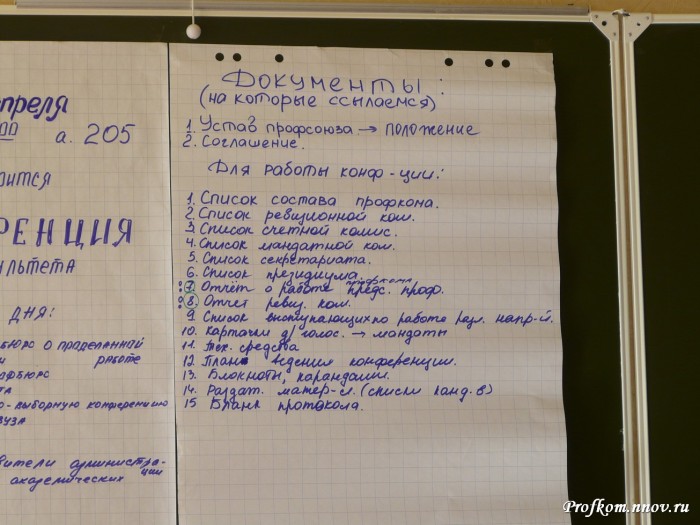 преля
00
а. 205
оится
РЕНЦИЯ
ультета
ДНЯ:
БЮРО О ПРОДЕЛАННОЙ
РАБОТЕ
ОФБЮРО
о-выборную конференцию
вуза
вители администра-
ции
академических
Документы:
(на которые ссылаемся)
1. Устав профсоюза → положение
2. Соглашение.
Для работы конф-ции:
1. Список состава профкома.
2. Список ревизионной ком.
3. Список счетной комис.
4. Список мандатной ком.
5. Список секретариата.
6. Список президиума.
профкома
7. Отчёт о работе предс. проф.
8. Отчет ревиз. ком.
9. Список выступающих по работе разл. напр-й.
10. Карточки д/голос. → мандаты
11. Тех. средства
12. План ведения конференции.
13. Блокноты, карандаши.
14. Раздат. матер-л. (списки канд. в)
15 Бланк протокола.
Profkom.nnov.ru